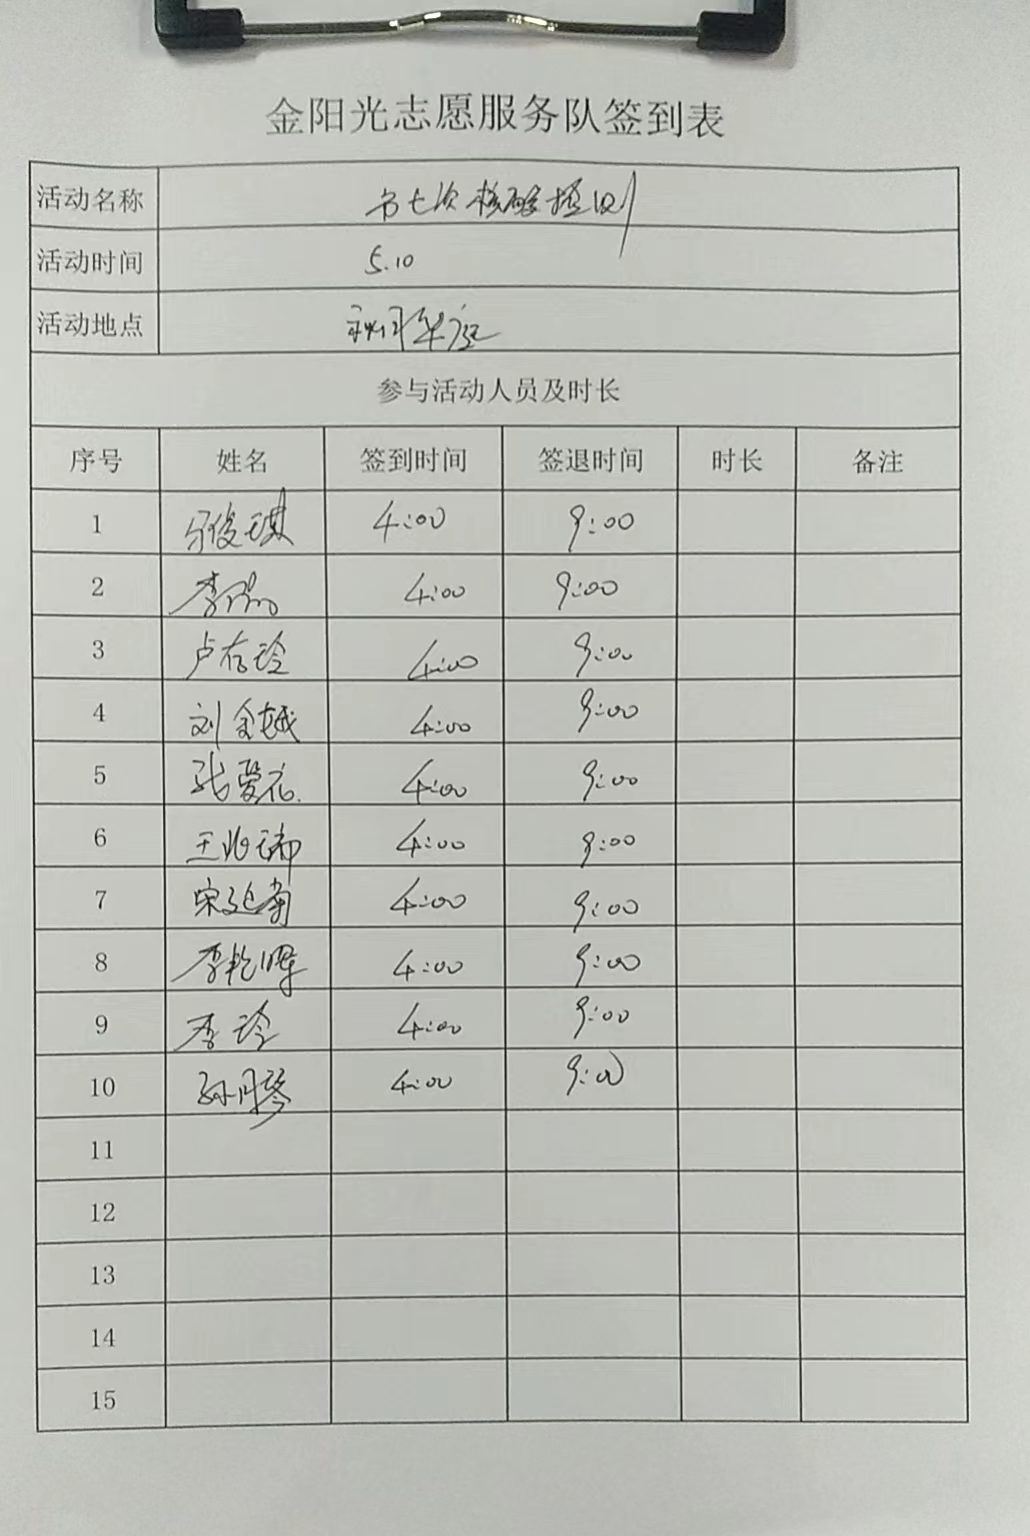 金阳光志愿服务队签到表
活动名称 第七次核酸检测
活动时间 5.10
活动地点
参与活动人员及时长
序号 姓名 签到时间 签退时间 时长 备注
1 4:00 9:00
2 4:00 9:00
3 卢存玲 4:00 9:00
4 刘金越 4:00 9:00
5 张爱花 4:00 9:00
6 王兆瑞 4:00 9:00
7 宋延菊 4:00 9:00
8 李乾晖 4:00 9:00
9 李玲 4:00 9:00
10 孙月琴 4:00 9:00
11
12
13
14
15